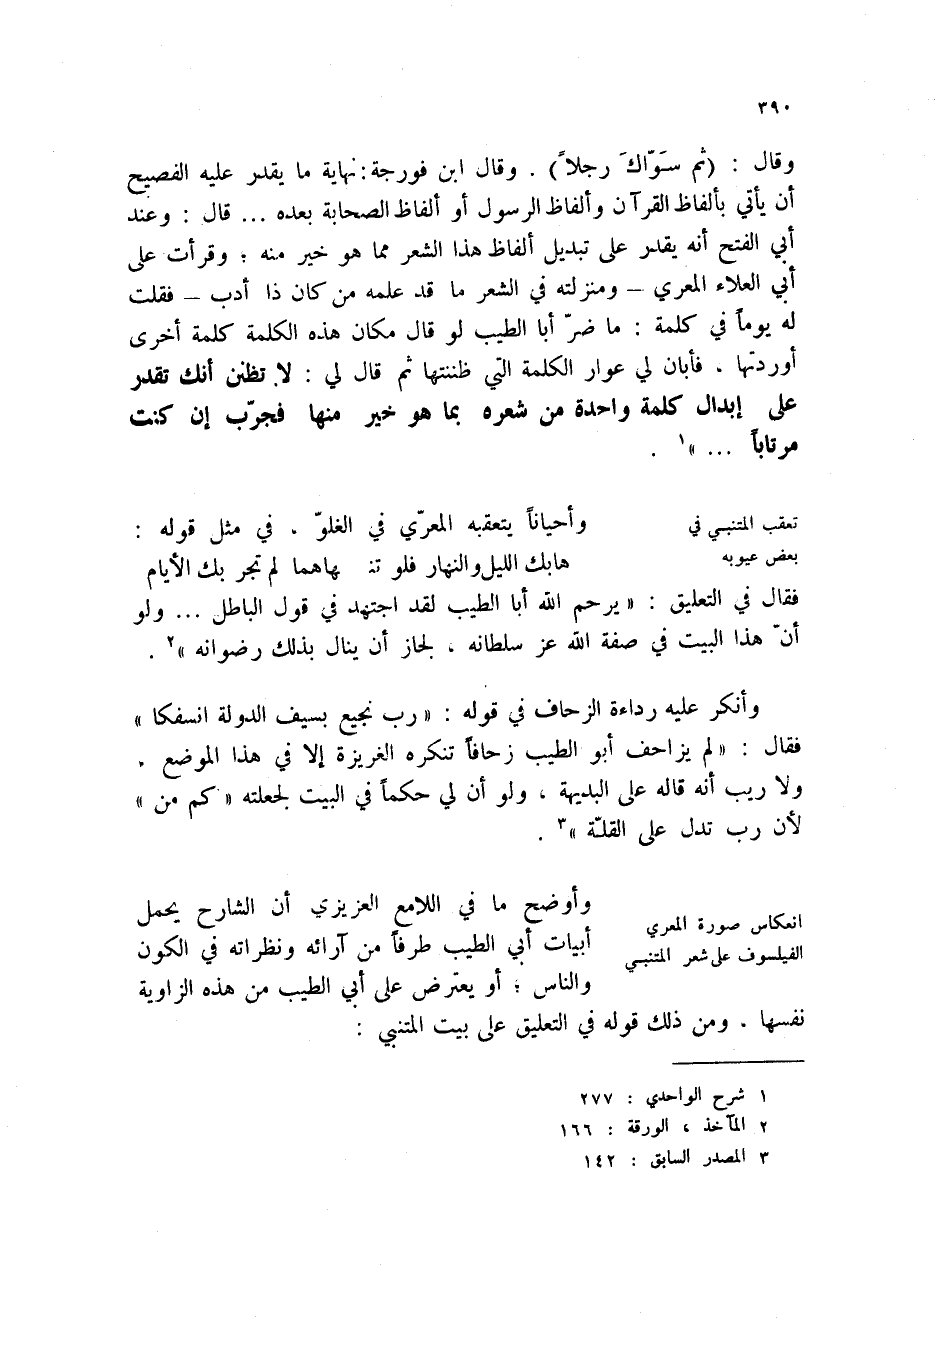 ٣٩٠
وقال : (ثم سَوّاكَ رجلاً) . وقال ابن فورجة: نهاية ما يقدر عليه الفصيح
أن يأتي بألفاظ القرآن وألفاظ الرسول أو ألفاظ الصحابة بعده ... قال : وعند
أبي الفتح أنه يقدر على تبديل ألفاظ هذا الشعر مما هو خير منه ؛ وقرأت على
أبي العلاء المعري – ومنزلته في الشعر ما قد علمه من كان ذا أدب – فقلت
له يوماً في كلمة : ما ضرّ أبا الطيب لو قال مكان هذه الكلمة كلمة أخرى
أوردتها . فأبان لي عوار الكلمة التي ظننتها ثم قال لي : لا تظنن أنك تقدر
على إبدال كلمة واحدة من شعره بما هو خير منها فجرّب إن كنت
مرتاباً ... »١ .
تعقب المتنبي في
بعض عيوبه
وأحياناً يتعقبه المعرّي في الغلوّ . في مثل قوله :
هابك الليل والنهار فلو تنـ ـهاهما لم تجر بك الأيام
فقال في التعليق : « يرحم الله أبا الطيب لقد اجتهد في قول الباطل ... ولو
أنّ هذا البيت في صفة الله عز سلطانه ، لجاز أن ينال بذلك رضوانه »٢ .
وأنكر عليه رداءة الزحاف في قوله : « رب نجيع بسيف الدولة انسفكا »
فقال : « لم يزاحف أبو الطيب زحافاً تنكره الغريزة إلا في هذا الموضع .
ولا ريب أنه قاله على البديهة ، ولو أن لي حكماً في البيت لجعلته « كم من »
لأن رب تدل على القلّة »٣ .
انعكاس صورة المعري
الفيلسوف على شعر المتنبي
وأوضح ما في اللامع العزيزي أن الشارح يحمل
أبيات أبي الطيب طرفاً من آرائه ونظراته في الكون
والناس ؛ أو يعترض على أبي الطيب من هذه الزاوية
نفسها . ومن ذلك قوله في التعليق على بيت المتنبي :
١ شرح الواحدي : ٢٧٧
٢ المآخذ ، الورقة : ١٦٦
٣ المصدر السابق : ١٤٢